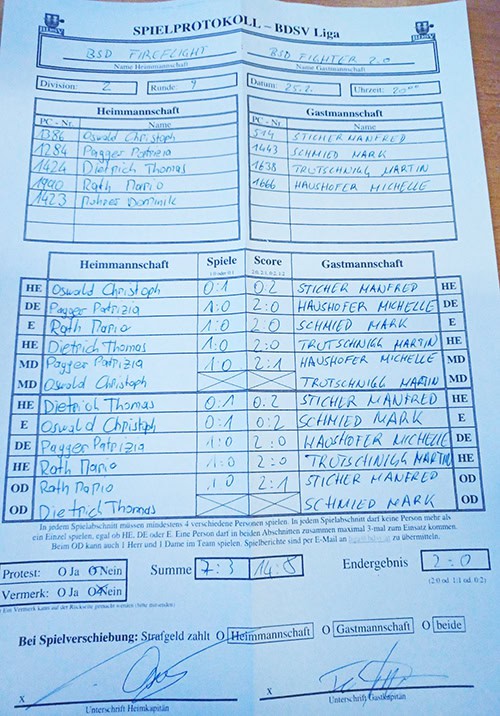 SPIELPROTOKOLL – BDSV Liga
BDSV BDSV
BSD FIREFLIGHT BSD FIGHTER 2.0
Name Heimmannschaft Name Gastmannschaft
Division: 2 Runde: 9 Datum: 25.2. Uhrzeit: 20⁰⁰
Heimmannschaft Gastmannschaft
PC - Nr. Name PC - Nr. Name
1386 Oswald Christoph 514 STICHER MANFRED
1284 Pagger Patrizia 1443 SCHMIED MARK
1424 Dietrich Thomas 1638 TRUTSCHNIGG MARTIN
1990 Rath Mario 1666 HAUSHOFER MICHELLE
1423 Dominik
Heimmannschaft Spiele Score Gastmannschaft
1:0 oder 0:1 2:0, 2:1, 0:2, 1:2
HE Oswald Christoph 0:1 0:2 STICHER MANFRED HE
DE Pagger Patrizia 1:0 2:0 HAUSHOFER MICHELLE DE
E Rath Mario 1:0 2:0 SCHMIED MARK E
HE Dietrich Thomas 1:0 2:0 TRUTSCHNIGG MARTIN HE
MD Pagger Patrizia 1:0 2:1 HAUSHOFER MICHELLE MD
MD Oswald Christoph TRUTSCHNIGG MARTIN MD
HE Dietrich Thomas 0:1 0:2 STICHER MANFRED HE
E Oswald Christoph 0:1 0:2 SCHMIED MARK E
DE Pagger Patrizia 1:0 2:0 HAUSHOFER MICHELLE DE
HE Rath Mario 1:0 2:0 TRUTSCHNIGG MARTIN HE
OD Rath Mario 1:0 2:1 STICHER MANFRED OD
OD Dietrich Thomas SCHMIED MARK OD
In jedem Spielabschnitt müssen mindestens 4 verschiedene Personen spielen. In jedem Spielabschnitt darf keine Person mehr als
ein Einzel spielen, egal ob HE, DE oder E. Eine Person darf in beiden Abschnitten zusammen maximal 3-mal zum Einsatz kommen.
Beim OD kann auch 1 Herr und 1 Dame im Team spielen. Spielberichte sind per E-Mail an zu übermitteln.
Protest: O Ja O Nein Summe 7:3 14:8 Endergebnis 2:0
Vermerk: O Ja O Nein (2:0 od. 1:1 od. 0:2)
Ein Vermerk kann auf der Rückseite gemacht werden (bitte ankreuzen)
Bei Spielverschiebung: Strafgeld zahlt O Heimmannschaft O Gastmannschaft O beide
X X
Unterschrift Heimkapitän Unterschrift Gastkapitän